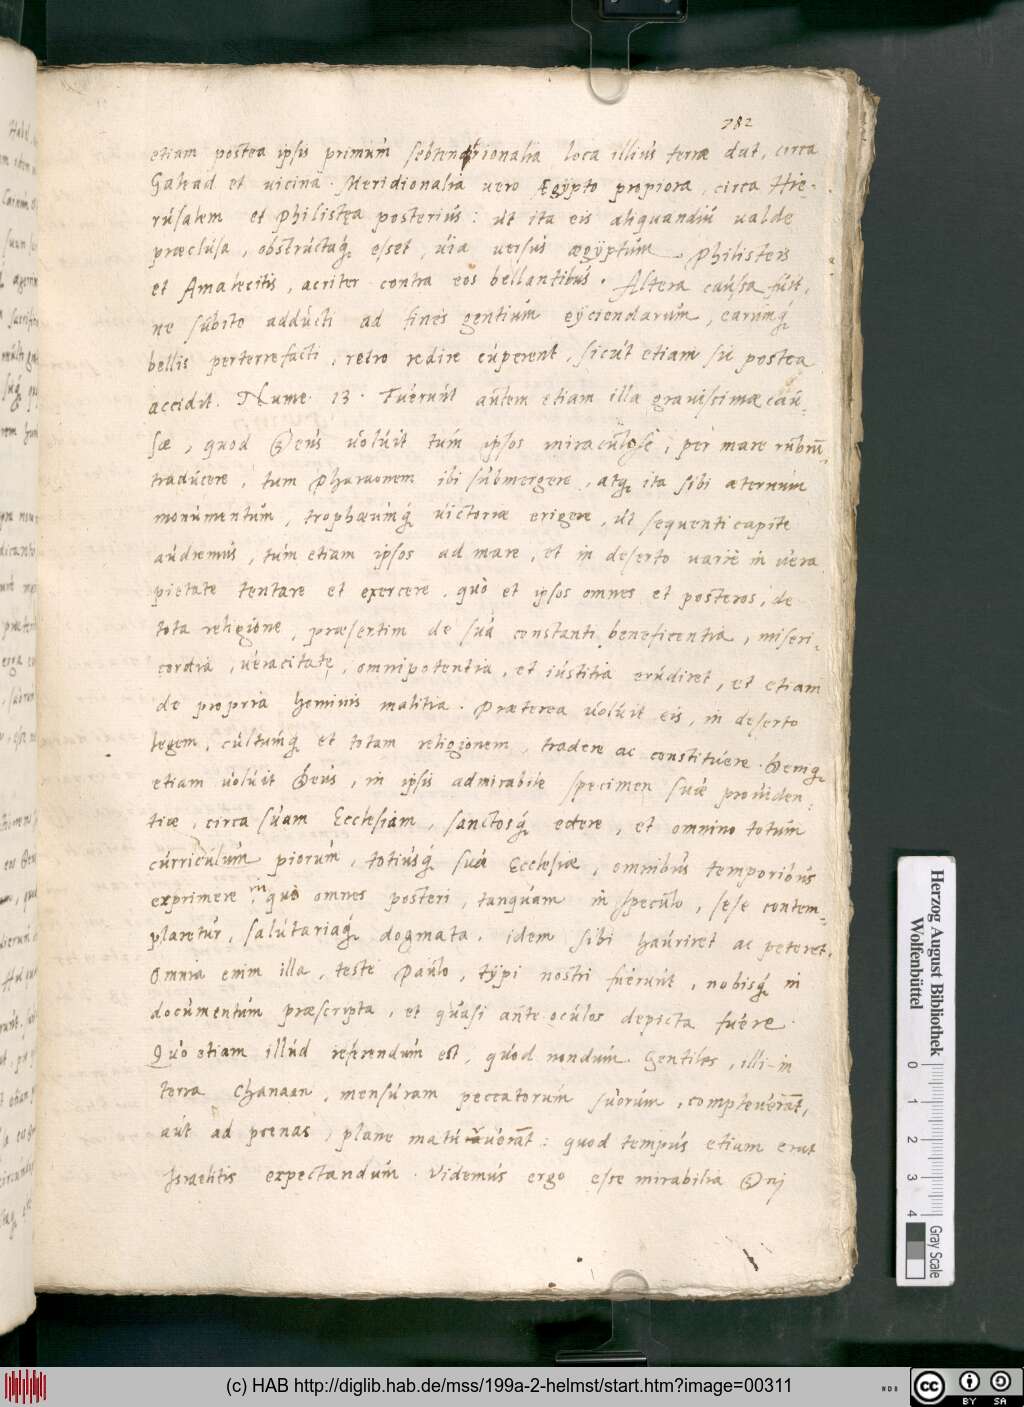 282
etiam postea ipsis primùm septentrionalia loca illius terræ dat, circa
Galead et uicina. Meridionalia vero Ægÿpto propiora, circa Hie-
rusalem et Philistea posterius: ut ita eis aliquandiu valde
præclusa, obstructaq esset, via versus ægÿptum. Philisteis
et Amalecitis, acriter contra eos bellantibus. Altera causa fuit,
ne subito adducti ad fines gentium eÿciendarum, earumq
bellis perterrefacti, retro redire cuperent, sicut etiam sie postea
accidit. Nume. 13. Fuerunt autem etiam illæ gravissimæ cau-
sæ, quod Deus voluit tum ipsos miraculose, per mare rubrū
traducere, tum Pharaonem ibi submergere, atq ita sibi æternum
monumentum, trophæumq victoriæ erigere, ut sequenti capite
audiemus, tum etiam ipsos ad mare, et in deserto variè in vera
pietate tentare et exercere, quò et ipsos omnes et posteros, de
tota religione, præsertim de sua constanti beneficentia, miseri-
cordia, veracitate, omnipotentia, et iustitia erudiret, et etiam
de propria hominis malitia. Præterea voluit eis, in deserto
legem, cultumq et totam religionem, tradere ac constituere. Demq
etiam voluit Deus, in ipsis admirabile specimen suæ providen-
tiæ, circa suam Ecclesiam, sanctosq edere, et omnino totum
curriculum piorum, totiusq suæ Ecclesiæ, omnibus temporibus
exprimere, quò omnes posteri, tanquam in speculo, sese contem-
plaretur, salutariaq dogmata, idem sibi hauriret ac peteret.
Omnia enim illa, teste Paulo, tÿpi nostri fuerunt, nobisq in
documentum præscripta, et quasi ante oculos depicta fuere.
Quo etiam illud referendum est, quod nondum Gentiles, illi in
terra Chanaan, mensuram peccatorum suorum, compleverāt,
aut ad pœnas, plane maturaverāt: quod tempus etiam erat
Israelitis expectandum. Videmus ergo esse mirabilia Dnj
Herzog August Bibliothek
Wolfenbüttel
0 1 2 3 4
Gray Scale
(c) HAB http://diglib.hab.de/mss/199a-2-helmst/start.htm?image=00311
cc BY SA